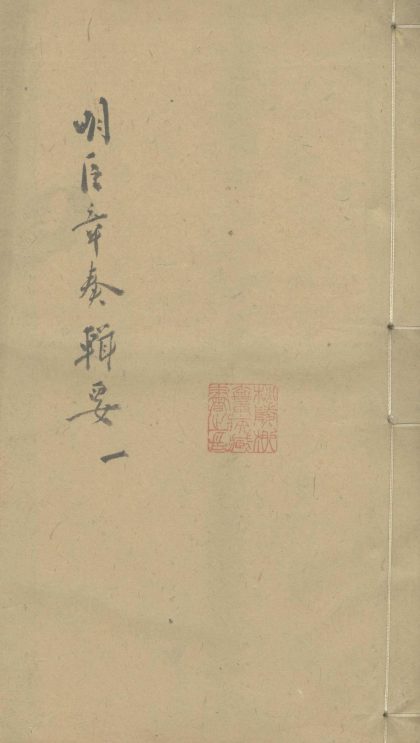 明臣章奏輯要 一